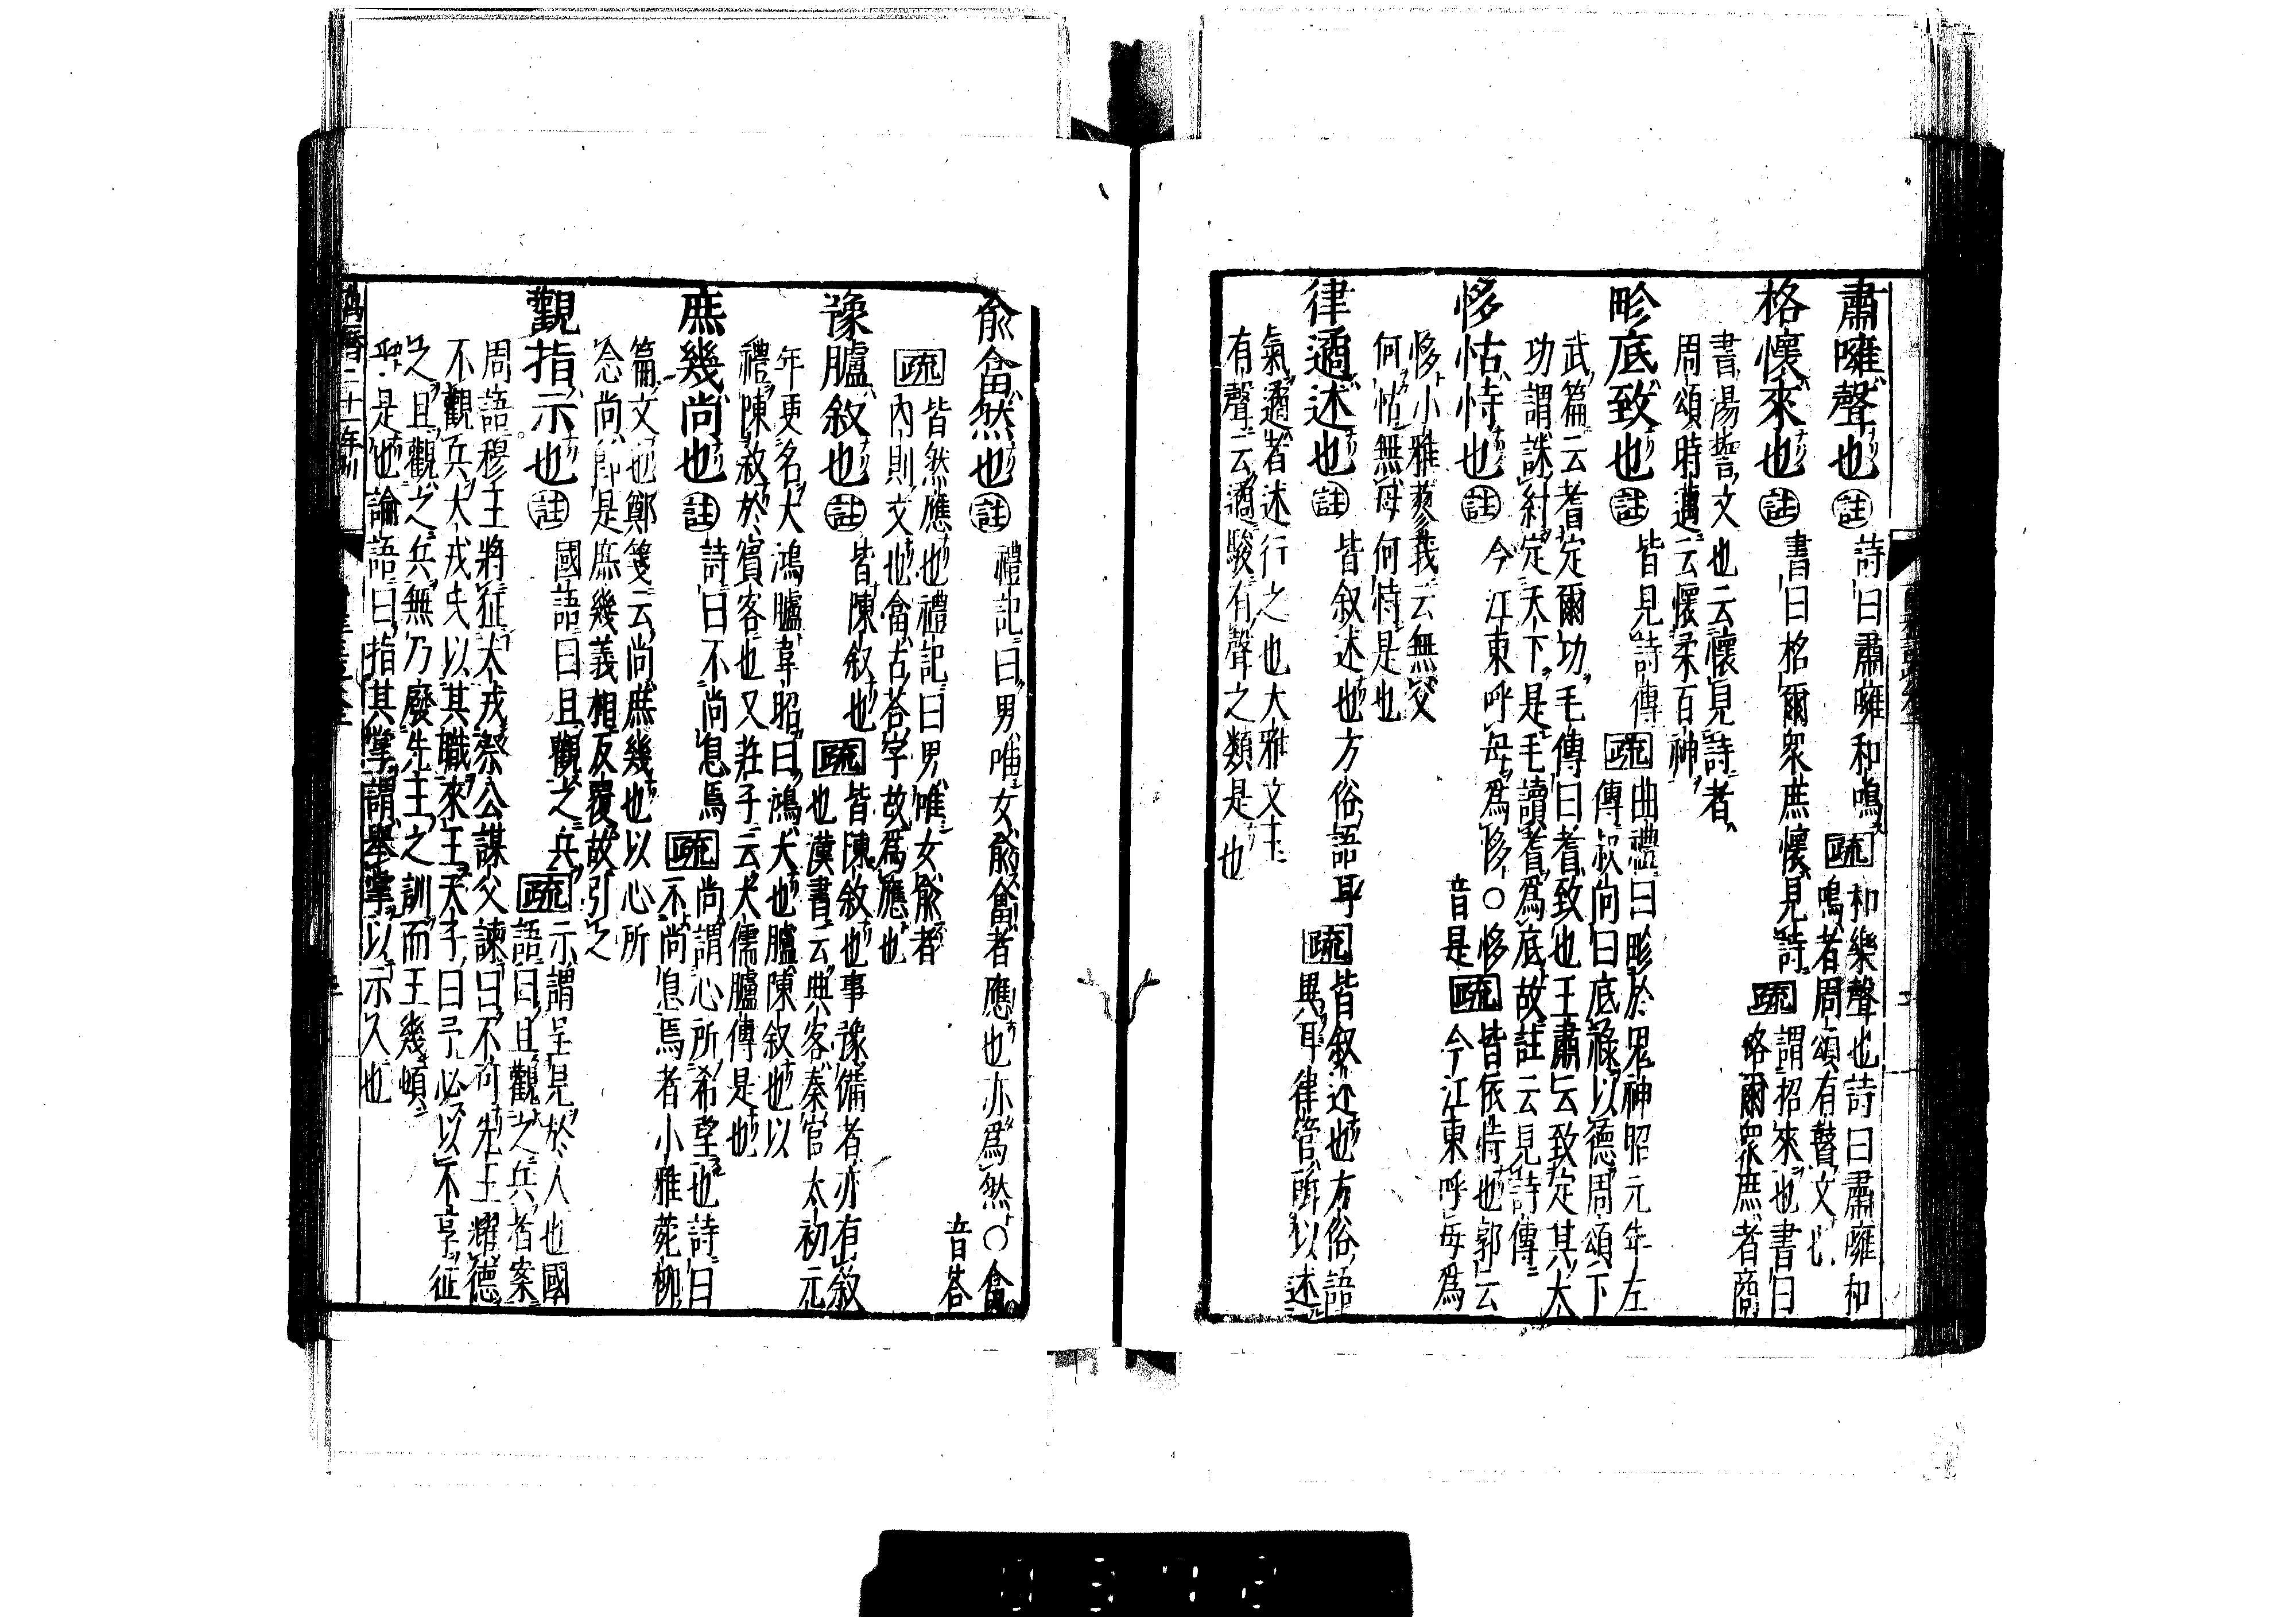 肅噰聲也註詩曰肅噰和鳴疏和樂聲也詩曰肅雝和
鳴者周頌有瞽文也
格懷來也註書曰格爾衆庶懷見詩疏謂招來也書曰
格爾衆庶者商
書湯誓文也云懷見詩者
周頌時邁云懷柔百神
畛底致也註皆見詩傳疏曲禮曰畛於鬼神昭元年左
傳叔向曰底祿以德周頌下
武篇云耆定爾功毛傳曰耆致也王肅云致定其大
功謂誅紂定天下是毛讀耆爲底故註云見詩傳
恀怙恃也註今江東呼母爲恀○恀
音是疏皆依恃也郭云
今江東呼母爲
恀小雅蓼莪云無父
何怙無母何恃是也
律遹述也註皆叙述也方俗語耳疏皆叙述也方俗語
異耳律管所以述
氣遹者述行之也大雅文王
有聲云遹駿有聲之類是也
俞畣然也註禮記曰男唯女俞畣者應也亦爲然○畣
音荅
疏皆然應也禮記曰男唯女俞者
內則文也畣古荅字故爲應也
豫臚敘也註皆陳敘也疏皆陳敘也事豫備者亦有敘
也漢書云典客秦官太初元
年更名大鴻臚韋昭曰鴻大也臚陳敘也以
禮陳敘於賓客也又莊子云大儒臚傳是也
庶幾尚也註詩曰不尚息焉疏尚謂心所希望也詩曰
不尚息焉者小雅菀柳
篇文也鄭箋云尚庶幾也以心所
念尚即是庶幾義相反覆故引之
觀指示也註國語曰且觀之兵疏示謂呈見於人也國
語曰且觀之兵者案
周語穆王將征犬戎祭公謀父諫曰不可先王耀德
不觀兵犬戎氏以其職來王天子曰予必以不享征
之且觀之兵無乃廢先王之訓而王幾頓
乎是也論語曰指其掌謂舉掌以示人也